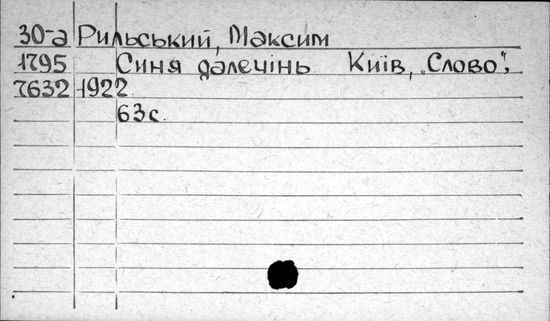 30-а Рильський, Максим
1795 Синя далечінь Київ, „Слово",
7632 1922
63с.